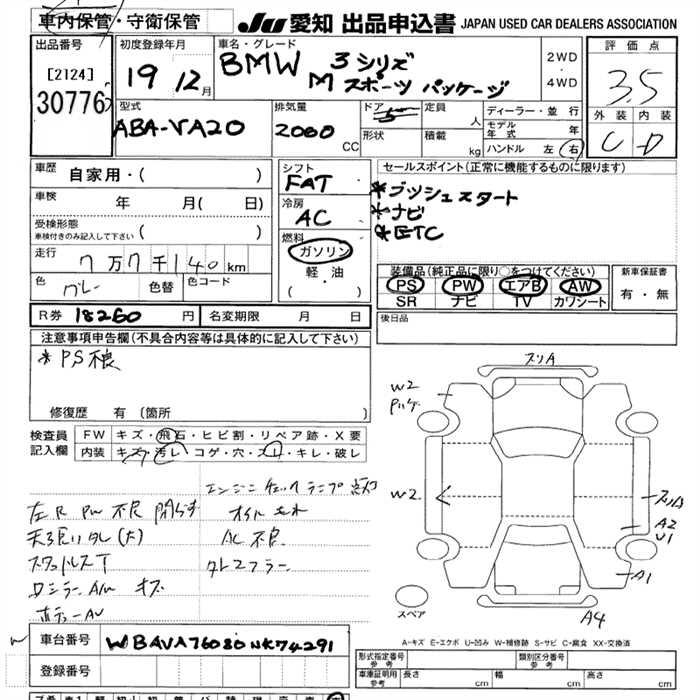 車内保管・守衛保管
JU 愛知 出品申込書 JAPAN USED CAR DEALERS ASSOCIATION
出品番号
[2124]
30776
初度登録年月
19 12月
車名・グレード
BMW 3シリズ
M スポーツ パッケージ
2WD
・
4WD
評価点
3.5
外装 内装
C D
型式
ABA-VA20
排気量
2000 CC
ドア
5
形状
定員 人
積載 kg
ディーラー・並行
モデル年式 年
ハンドル 左 右
車歴
自家用・( )
車検 年 月( 日)
受検形態
車検付きのみ記入して下さい ( )
走行 7万7千140km
色 グレー 色替 色コード
シフト
FAT
冷房
AC
燃料
ガソリン
軽・油
( ・ )
セールスポイント(正常に機能するものに限ります)
*プッシュスタート
*ナビ
*ETC
装備品(純正品に限り○をつけてください)
PS PW エアB AW
SR ナビ TV カワシート
新車保証書
有・無
R券 18260円 名変期限 月 日
後日品
注意事項申告欄(不具合内容等は具体的に記入して下さい)
*PS不良
修復歴 有(箇所 )
検査員
記入欄
FW キズ・飛石・ヒビ割・リペア跡・X要
内装 キズ・汚レ・コゲ・穴・スレ・キレ・破レ
エンジンチェックランプ点灯
左R PW 不良 開らず
オイルモレ
天張りタレ(大)
AC不良
スタッドレスT
タレマフラー
ロジラー A/W キズ
ボデーAU
スリA
W2
W2
スリA
A2
U1
A1
A4
スペア
A-キズ E-エクボ U-凹み W-補修跡 S-サビ C-腐食 XX-交換済
車台番号 WBAVA76080NK74291
登録番号
形式指定番号 参考
類別区分番号 参考
車庫証明用 参考 長さ cm 幅 cm 高さ cm